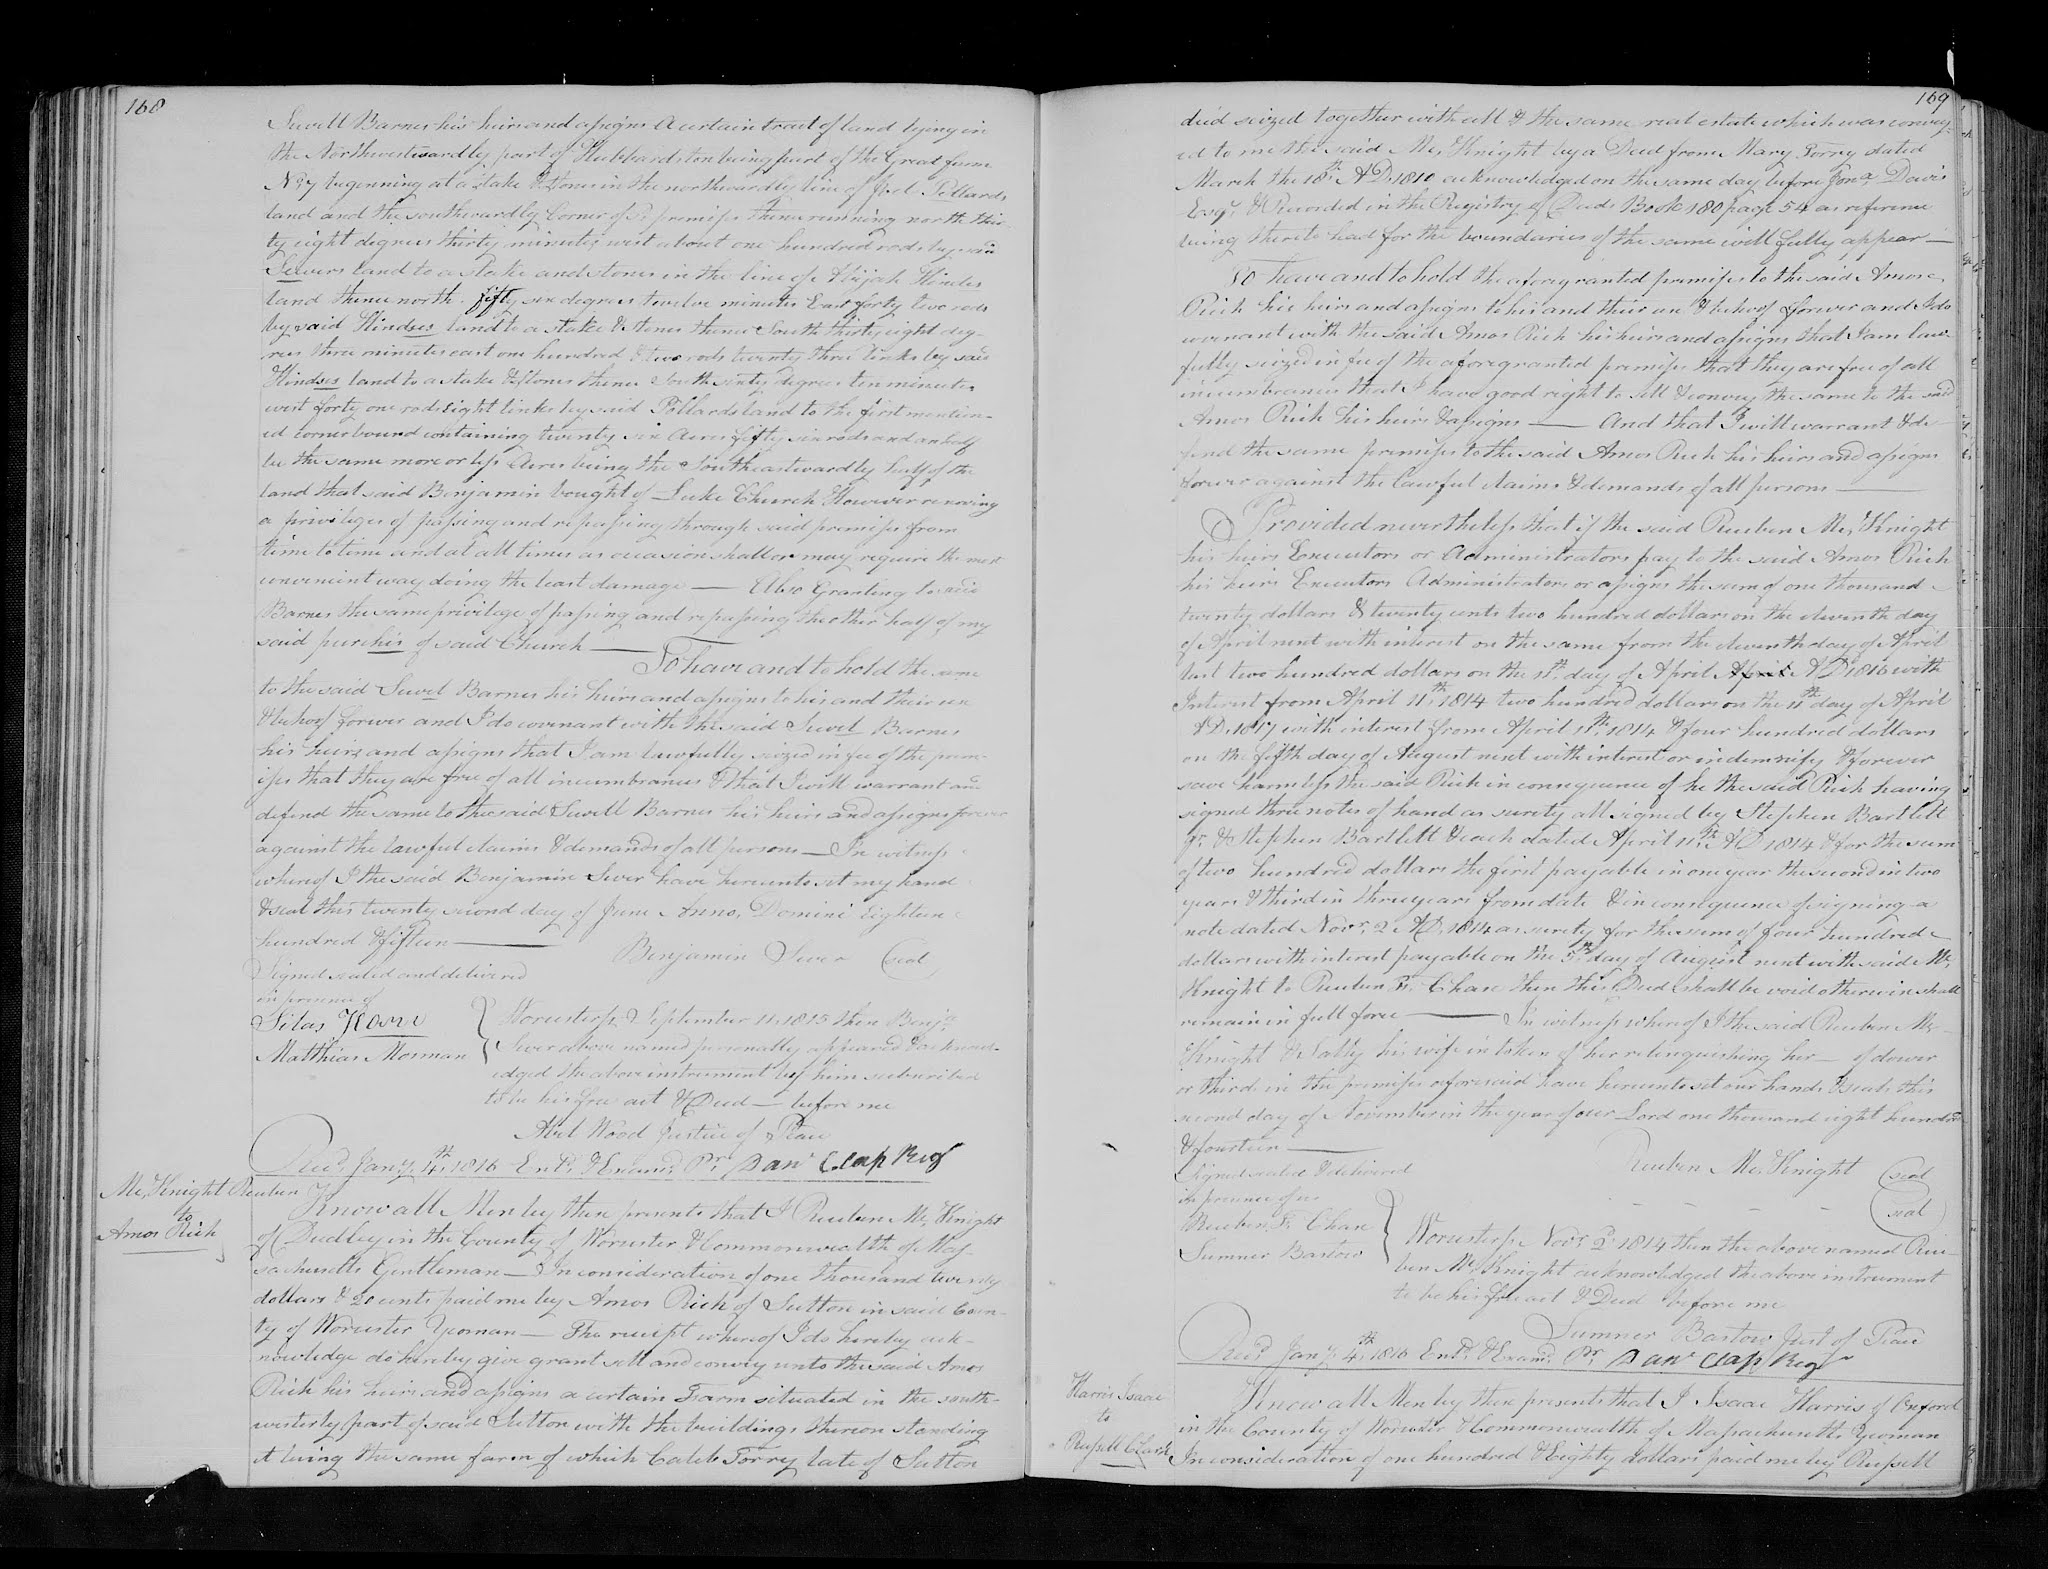 168
Sewell Barnes his heirs and assigns A certain tract of land lying in
the Northwestwardly part of Hubbardston being part of the Great farm
No 7 beginning at a stake & stones in the northwardly line of Joel Pollards
land and the southwardly Corner of premises thence running north thir-
ty eight degrees thirty minutes west about one hundred rods by said
Severs land to a stake and stones in the line of Abijah Hindes
land thence north fifty six degrees twelve minutes East forty two rods
by said Hindses land to a stake & stones thence South thirty eight deg-
rees three minutes east one hundred & two rods twenty three links by said
Hindses land to a stake & stones thence South sixty degrees ten minutes
west forty one rods eight links by said Pollards land to the first mention-
ed corner bound containing twenty six Acres fifty six rods and an half
be the same more or less Acres being the Southeastwardly half of the
land that said Benjamin bought of Luke Church However reserving
a privileges of passing and repassing through said premises from
time to time and at all times as occasion shall or may require the most
convenient way doing the least damage — Also Granting to said
Barnes the same privilege of passing and repassing the other half of my
said purchis of said Church —
To have and to hold the same
to the said Sewel Barnes his heirs and assigns to his and their use
& behoof forever and I do covenant with the said Sewel Barnes
his heirs and assigns that I am lawfully seized in fee of the prem-
ises that they are free of all incumbrances & that I will warrant and
defend the same to the said Sewell Barnes his heirs and assigns forever
against the lawful claims & demands of all persons — In witness
whereof I the said Benjamin Sever have hereunto set my hand
& seal this twenty second day of June Anno Domini Eighteen
hundred & fifteen —
Benjamin Sever (seal)
Signed sealed and delivered
in presence of
Silas
Matthias Mosman
Worcester ss September 11, 1815 then Benja
Sever above named personally appeared & acknowl-
edged the above instrument by him subscribed
to be his free act & Deed — before me
Abel Wood Justice of Peace
Recd Jany 4th 1816 Entd & Examd Pr Danl Clap Reg
McKnight Reuben
to
Amos Rich
Know all Men by these presents that I Reuben McKnight
of Dudley in the County of Worcester & Commonwealth of Mas-
sachusetts Gentleman — In consideration of one thousand twenty
dollars & 20 cents paid me by Amos Rich of Sutton in said Coun-
ty of Worcester Yeoman — The receipt whereof I do hereby ack-
nowledge do hereby give grant sell and convey unto the said Amos
Rich his heirs and assigns a certain Farm situated in the south-
westerly part of said Sutton with the buildings thereon standing
it being the same farm of which Caleb Torry late of Sutton
169
died seized together with all & the same real estate which was convey-
ed to me the said McKnight by a Deed from Mary Torry dated
March the 18th AD 1810 acknowledged on the same day before Jona Davis
Esqr & Recorded in the Registry of Deeds Book 180 page 54 as reference
being thereto had for the boundaries of the same will fully appear —
To have and to hold the aforegranted premises to the said Amos
Rich his heirs and assigns to his and their use & behoof forever and I do
covenant with the said Amos Rich his heirs and assigns that I am law-
fully seized in fee of the aforegranted premises that they are free of all
incumbrances that I have good right to sell & convey the same to the said
Amos Rich his heirs & assigns — And that I will warrant & de-
fend the same premises to the said Amos Rich his heirs and assigns
forever against the lawful claims & demands of all persons —
Provided nevertheless that if the said Reuben McKnight
his heirs Executors or Administrators pay to the said Amos Rich
his heirs Executors Administrators or assigns the sum of one thousand
twenty dollars & twenty cents two hundred dollars on the eleventh day
of April next with interest on the same from the eleventh day of April
last two hundred dollars on the 11th day of April April AD 1816 with
Interest from April 11th 1814 two hundred dollars on the 11th day of April
AD 1817 with interest from April 11th 1814 & four hundred dollars
on the fifth day of August next with interest or indemnify & forever
save harmless the said Rich in consequence of he the said Rich having
signed three notes of hand as surety all signed by Stephen Bartlett
Jr & Stephen Bartlett & each dated April 11th AD 1814 & for the sum
of two hundred dollars the first payable in one year the second in two
years & third in three years from date & in consequence of signing a
note dated Novr 2 AD 1814 as surety for the sum of four hundred
dollars with interest payable on the 5th day of August next with said Mc
Knight to Reuben Chase then this Deed shall be void otherwise shall
remain in full force — In witness whereof I the said Reuben Mc-
Knight & Sally his wife in token of her relinquishing her — of dower
or thirds in the premises aforesaid have hereunto set our hands & seals this
second day of November in the year of our Lord one thousand eight hundred
& fourteen —
Reuben McKnight (seal)
Signed sealed & delivered
in presence of us
- - - - (seal)
Reuben Chase
Sumner Bastow
Worcester ss Novr 2d 1814 then the above named Reu-
ben McKnight acknowledged the above instrument
to be his free act & Deed before me
Sumner Bastow Just of Peace
Recd Jany 4th 1816 Entd & Examd Pr Danl Clap Reg
Harris Isaac
to
Russell Clark
Know all Men by these presents that I Isaac Harris of Oxford
in the County of Worcester & Commonwealth of Massachusetts Yeoman
In consideration of one hundred & Eighty dollars paid me by Russell